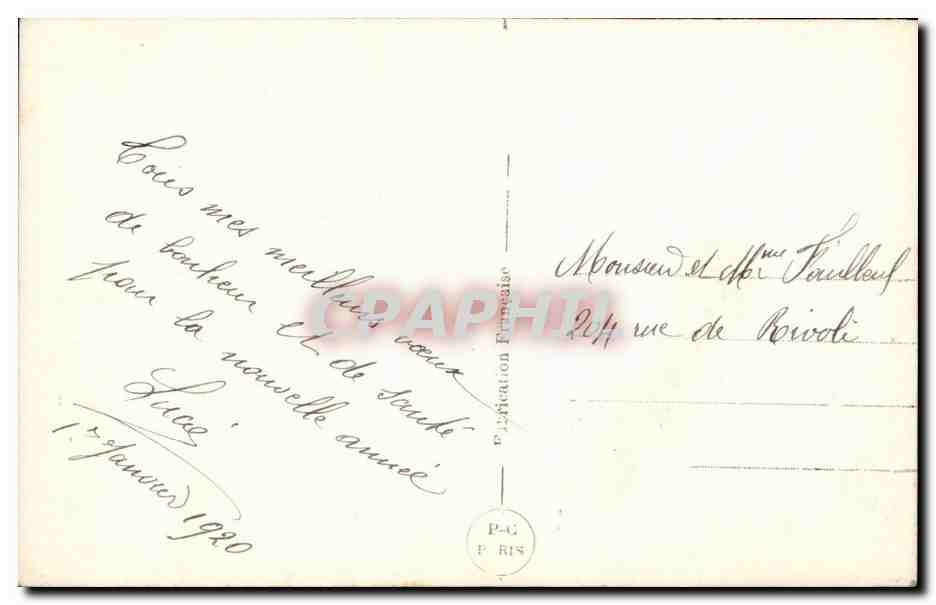 Tous mes meilleurs vœux
de bonheur et de santé
pour la nouvelle année
Lucie
1er Janvier 1920
Monsieur et Mme
204 rue de Rivoli
Fabrication Française
P-C
PARIS
CPAPHIL